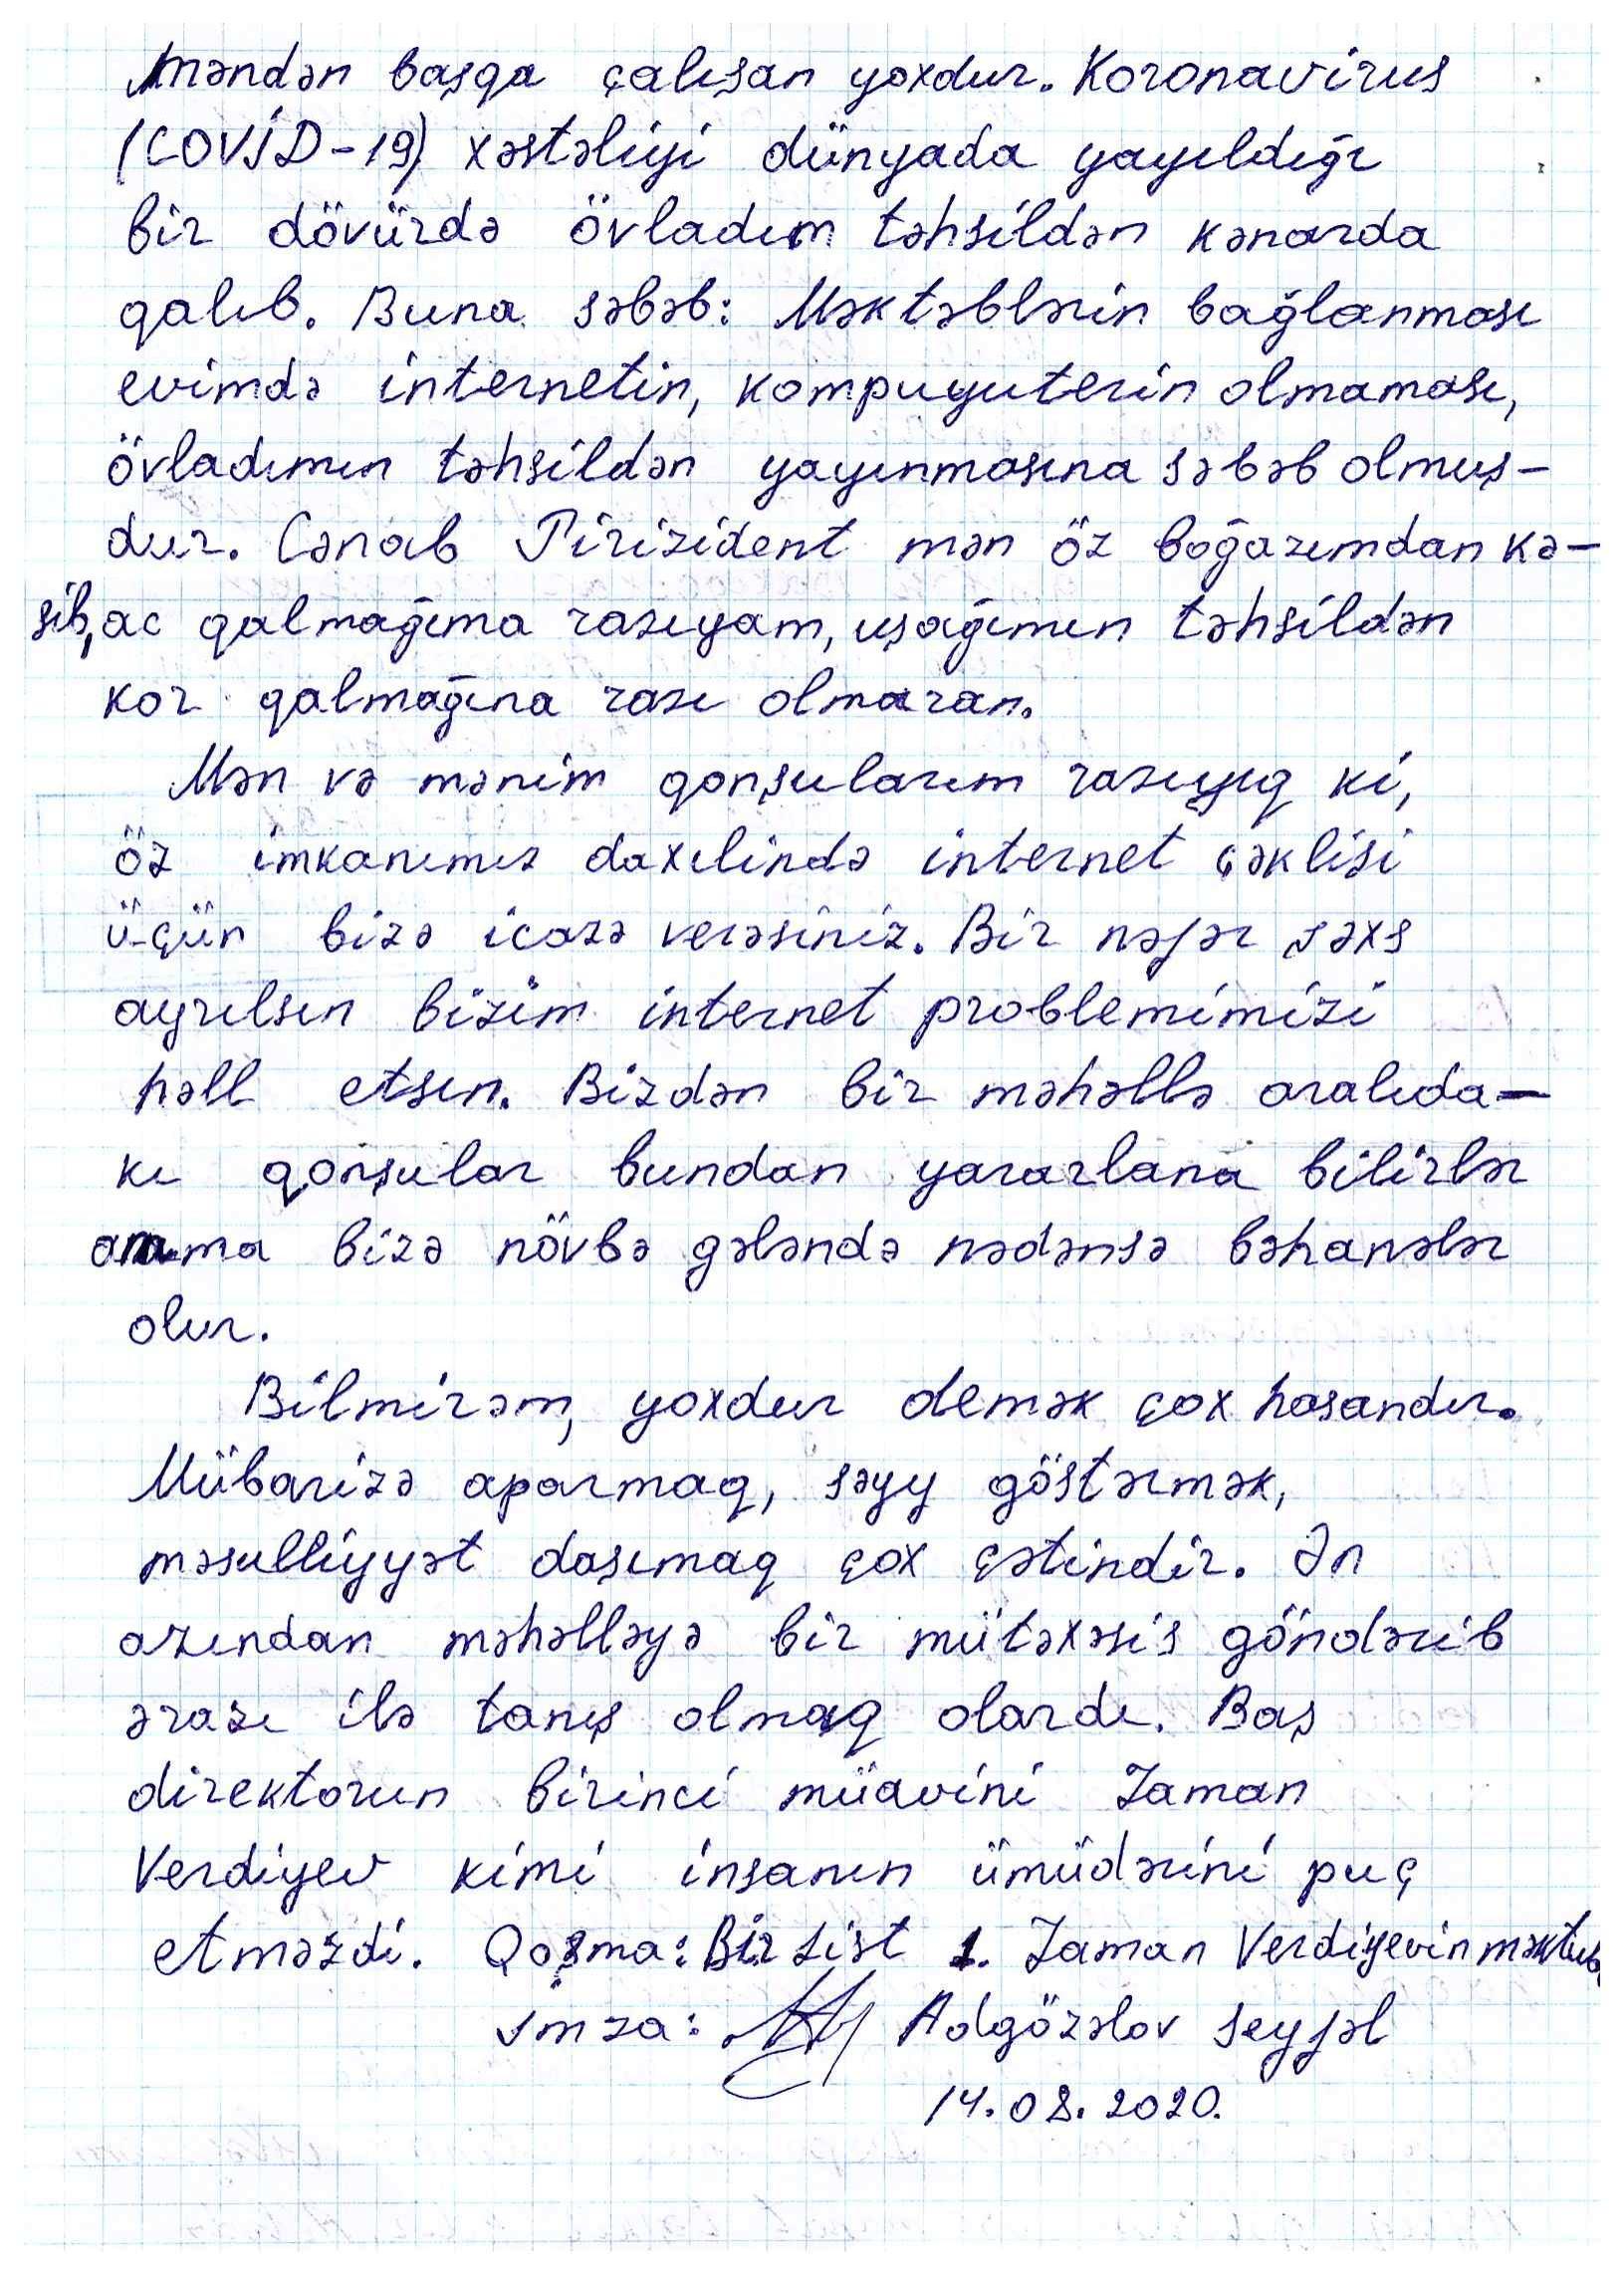 Məndən başqa çalışan yoxdur. Koronavirus
(COVİD-19) xəstəliyi dünyada yayıldığı
bir dövürdə övladım təhsildən kənarda
qalıb. Buna səbəb: Məktəblərin bağlanması
evimdə internetin, kompuyuterin olmaması,
övladımın təhsildən yayınmasına səbəb olmuş-
dur. Cənab Pirizident mən öz boğazımdan kə-
sib, ac qalmağıma razıyam, uşağımın təhsildən
kor qalmağına razı olmaram.
Mən və mənim qonşularım razıyıq ki,
öz imkanımız daxilində internet çəklişi
üçün bizə icazə verəsiniz. Bir nəfər şəxs
ayrılsın bizim internet problemimizi
həll etsin. Bizdən bir məhəllə aralıda-
kı qonşular bundan yararlana bilirlər
amma bizə növbə gələndə nədənsə bəhanələr
olur.
Bilmirəm, yoxdur demək çox hasandır.
Mübarizə aparmaq, səyy göstərmək,
məsulliyyət daşımaq çox çətindir. Ən
azından məhəlləyə bir mütəxəsis göndərib
ərazi ilə tanış olmaq olardı. Baş
direktorun birinci müavini Zaman
Verdiyev kimi insanın ümüdərini puç
etməzdi. Qoşma: Bir List 1. Zaman Verdiyevin məktubu
imza: Adgözəlov Seyfəl
14.08.2020.